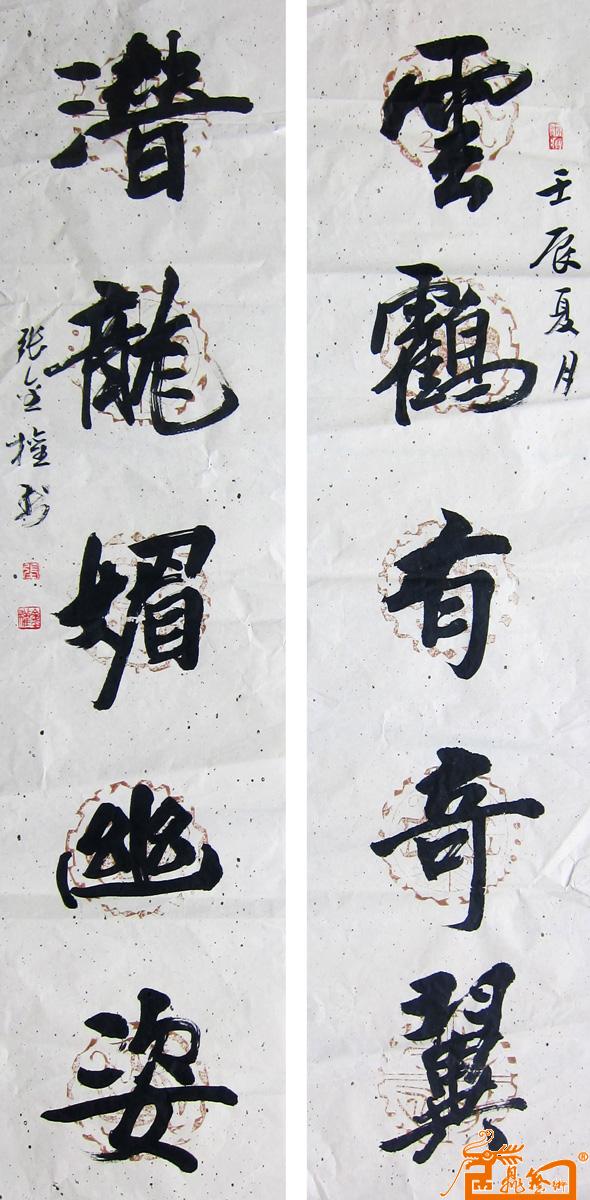 壬辰夏月
雲鶴有奇翼
潛龍媚幽姿
張金權書